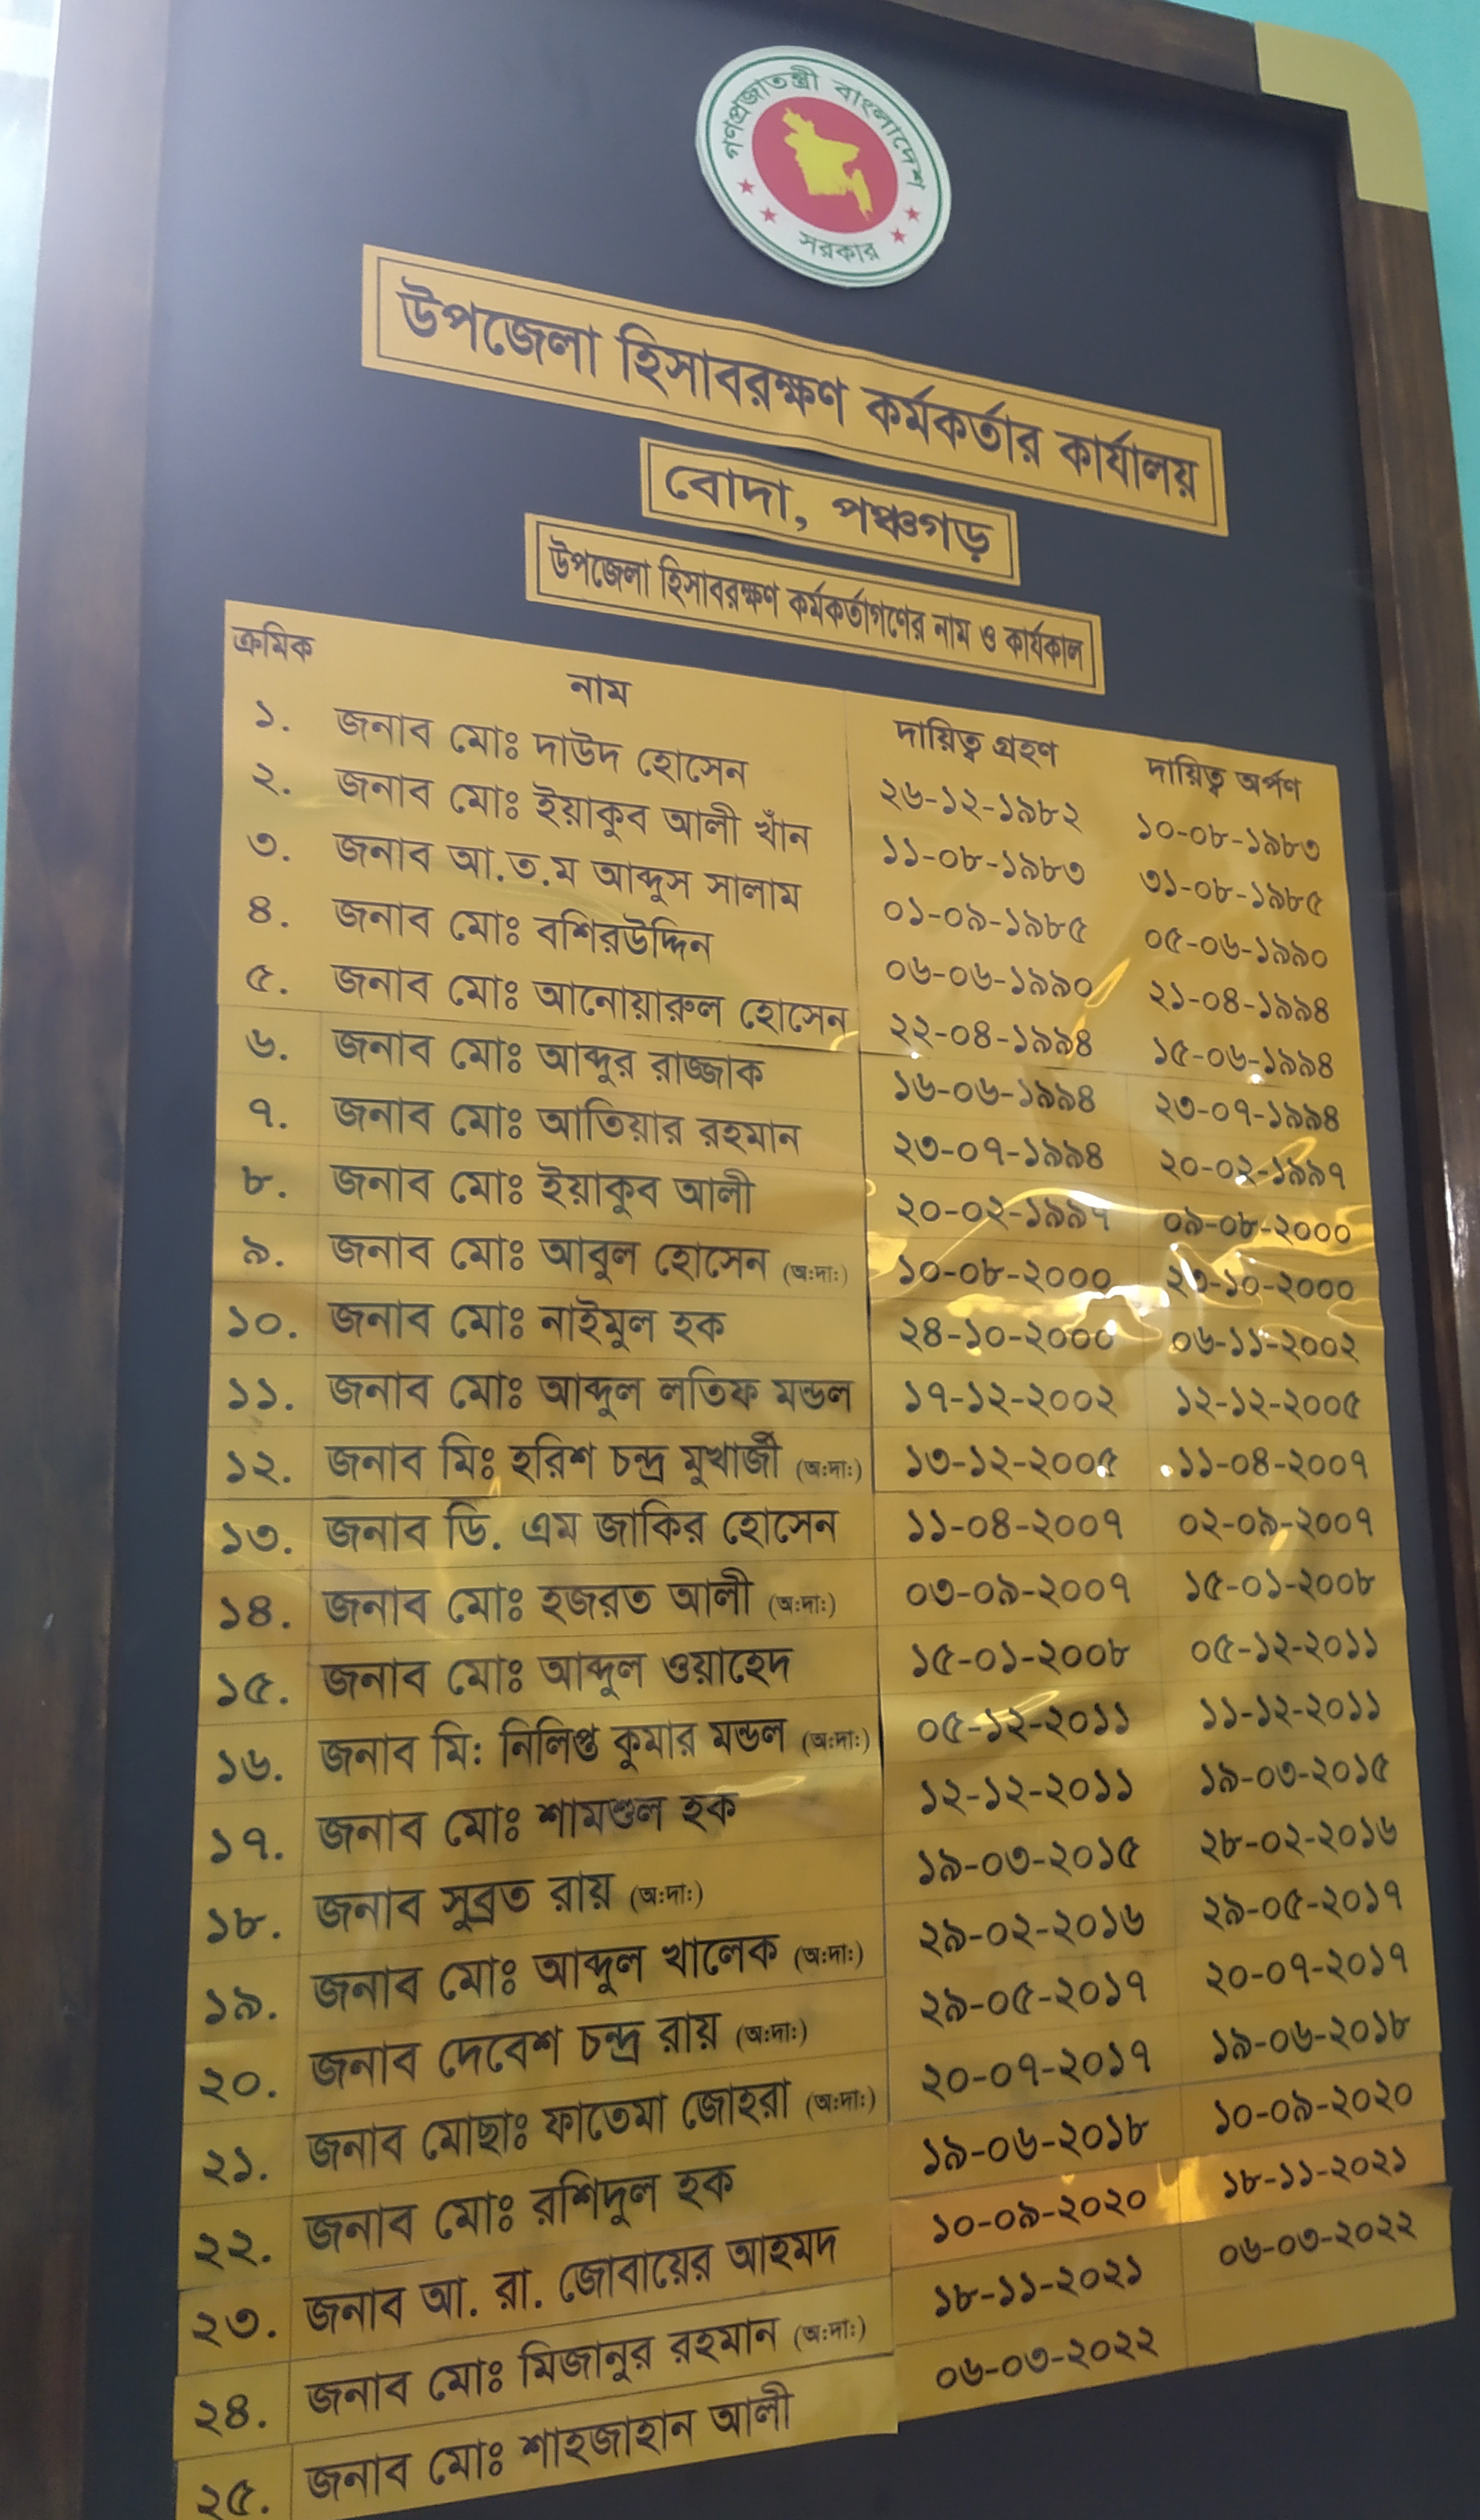 গণপ্রজাতন্ত্রী বাংলাদেশ
সরকার
উপজেলা হিসাবরক্ষণ কর্মকর্তার কার্যালয়
বোদা, পঞ্চগড়
উপজেলা হিসাবরক্ষণ কর্মকর্তাগণের নাম ও কার্যকাল
ক্রমিক নাম দায়িত্ব গ্রহণ দায়িত্ব অর্পণ
১. জনাব মোঃ দাউদ হোসেন ২৬-১২-১৯৮২ ১০-০৮-১৯৮৩
২. জনাব মোঃ ইয়াকুব আলী খাঁন ১১-০৮-১৯৮৩ ৩১-০৮-১৯৮৫
৩. জনাব আ.ত.ম আব্দুস সালাম ০১-০৯-১৯৮৫ ০৫-০৬-১৯৯০
৪. জনাব মোঃ বশিরউদ্দিন ০৬-০৬-১৯৯০ ২১-০৪-১৯৯৪
৫. জনাব মোঃ আনোয়ারুল হোসেন ২২-০৪-১৯৯৪ ১৫-০৬-১৯৯৪
৬. জনাব মোঃ আব্দুর রাজ্জাক ১৬-০৬-১৯৯৪ ২৩-০৭-১৯৯৪
৭. জনাব মোঃ আতিয়ার রহমান ২৩-০৭-১৯৯৪ ২০-০২-১৯৯৭
৮. জনাব মোঃ ইয়াকুব আলী ২০-০২-১৯৯৭ ০৯-০৮-২০০০
৯. জনাব মোঃ আবুল হোসেন (অ:দা:) ১০-০৮-২০০০ ২৩-১০-২০০০
১০. জনাব মোঃ নাইমুল হক ২৪-১০-২০০০ ০৬-১১-২০০২
১১. জনাব মোঃ আব্দুল লতিফ মন্ডল ১৭-১২-২০০২ ১২-১২-২০০৫
১২. জনাব মিঃ হরিশ চন্দ্র মুখার্জী (অ:দা:) ১৩-১২-২০০৫ ১১-০৪-২০০৭
১৩. জনাব ডি. এম জাকির হোসেন ১১-০৪-২০০৭ ০২-০৯-২০০৭
১৪. জনাব মোঃ হজরত আলী (অ:দা:) ০৩-০৯-২০০৭ ১৫-০১-২০০৮
১৫. জনাব মোঃ আব্দুল ওয়াহেদ ১৫-০১-২০০৮ ০৫-১২-২০১১
১৬. জনাব মি: নিলিপ্ত কুমার মন্ডল (অ:দা:) ০৫-১২-২০১১ ১১-১২-২০১১
১৭. জনাব মোঃ শামশুল হক ১২-১২-২০১১ ১৯-০৩-২০১৫
১৮. জনাব সুব্রত রায় (অ:দা:) ১৯-০৩-২০১৫ ২৮-০২-২০১৬
১৯. জনাব মোঃ আব্দুল খালেক (অ:দা:) ২৯-০২-২০১৬ ২৯-০৫-২০১৭
২০. জনাব দেবেশ চন্দ্র রায় (অ:দা:) ২৯-০৫-২০১৭ ২০-০৭-২০১৭
২১. জনাব মোছাঃ ফাতেমা জোহরা (অ:দা:) ২০-০৭-২০১৭ ১৯-০৬-২০১৮
২২. জনাব মোঃ রশিদুল হক ১৯-০৬-২০১৮ ১০-০৯-২০২০
২৩. জনাব আ. রা. জোবায়ের আহমদ ১০-০৯-২০২০ ১৮-১১-২০২১
২৪. জনাব মোঃ মিজানুর রহমান (অ:দা:) ১৮-১১-২০২১ ০৬-০৩-২০২২
২৫. জনাব মোঃ শাহজাহান আলী ০৬-০৩-২০২২